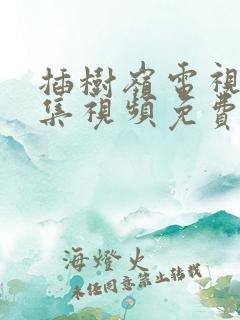 插樹嶺電視
集視頻免費
海燈火
未經同意禁止轉載